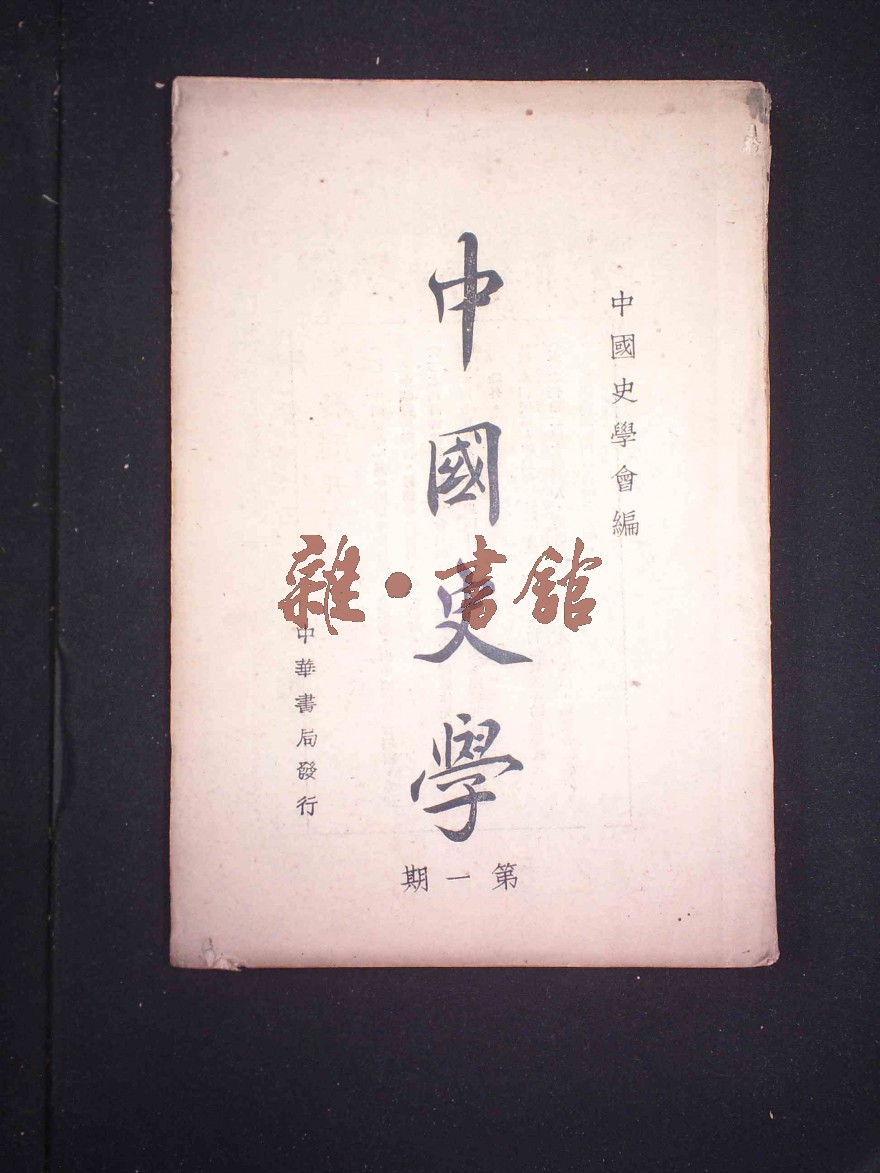 中國史學會編
中國史學
第一期
中華書局發行
雜·書館